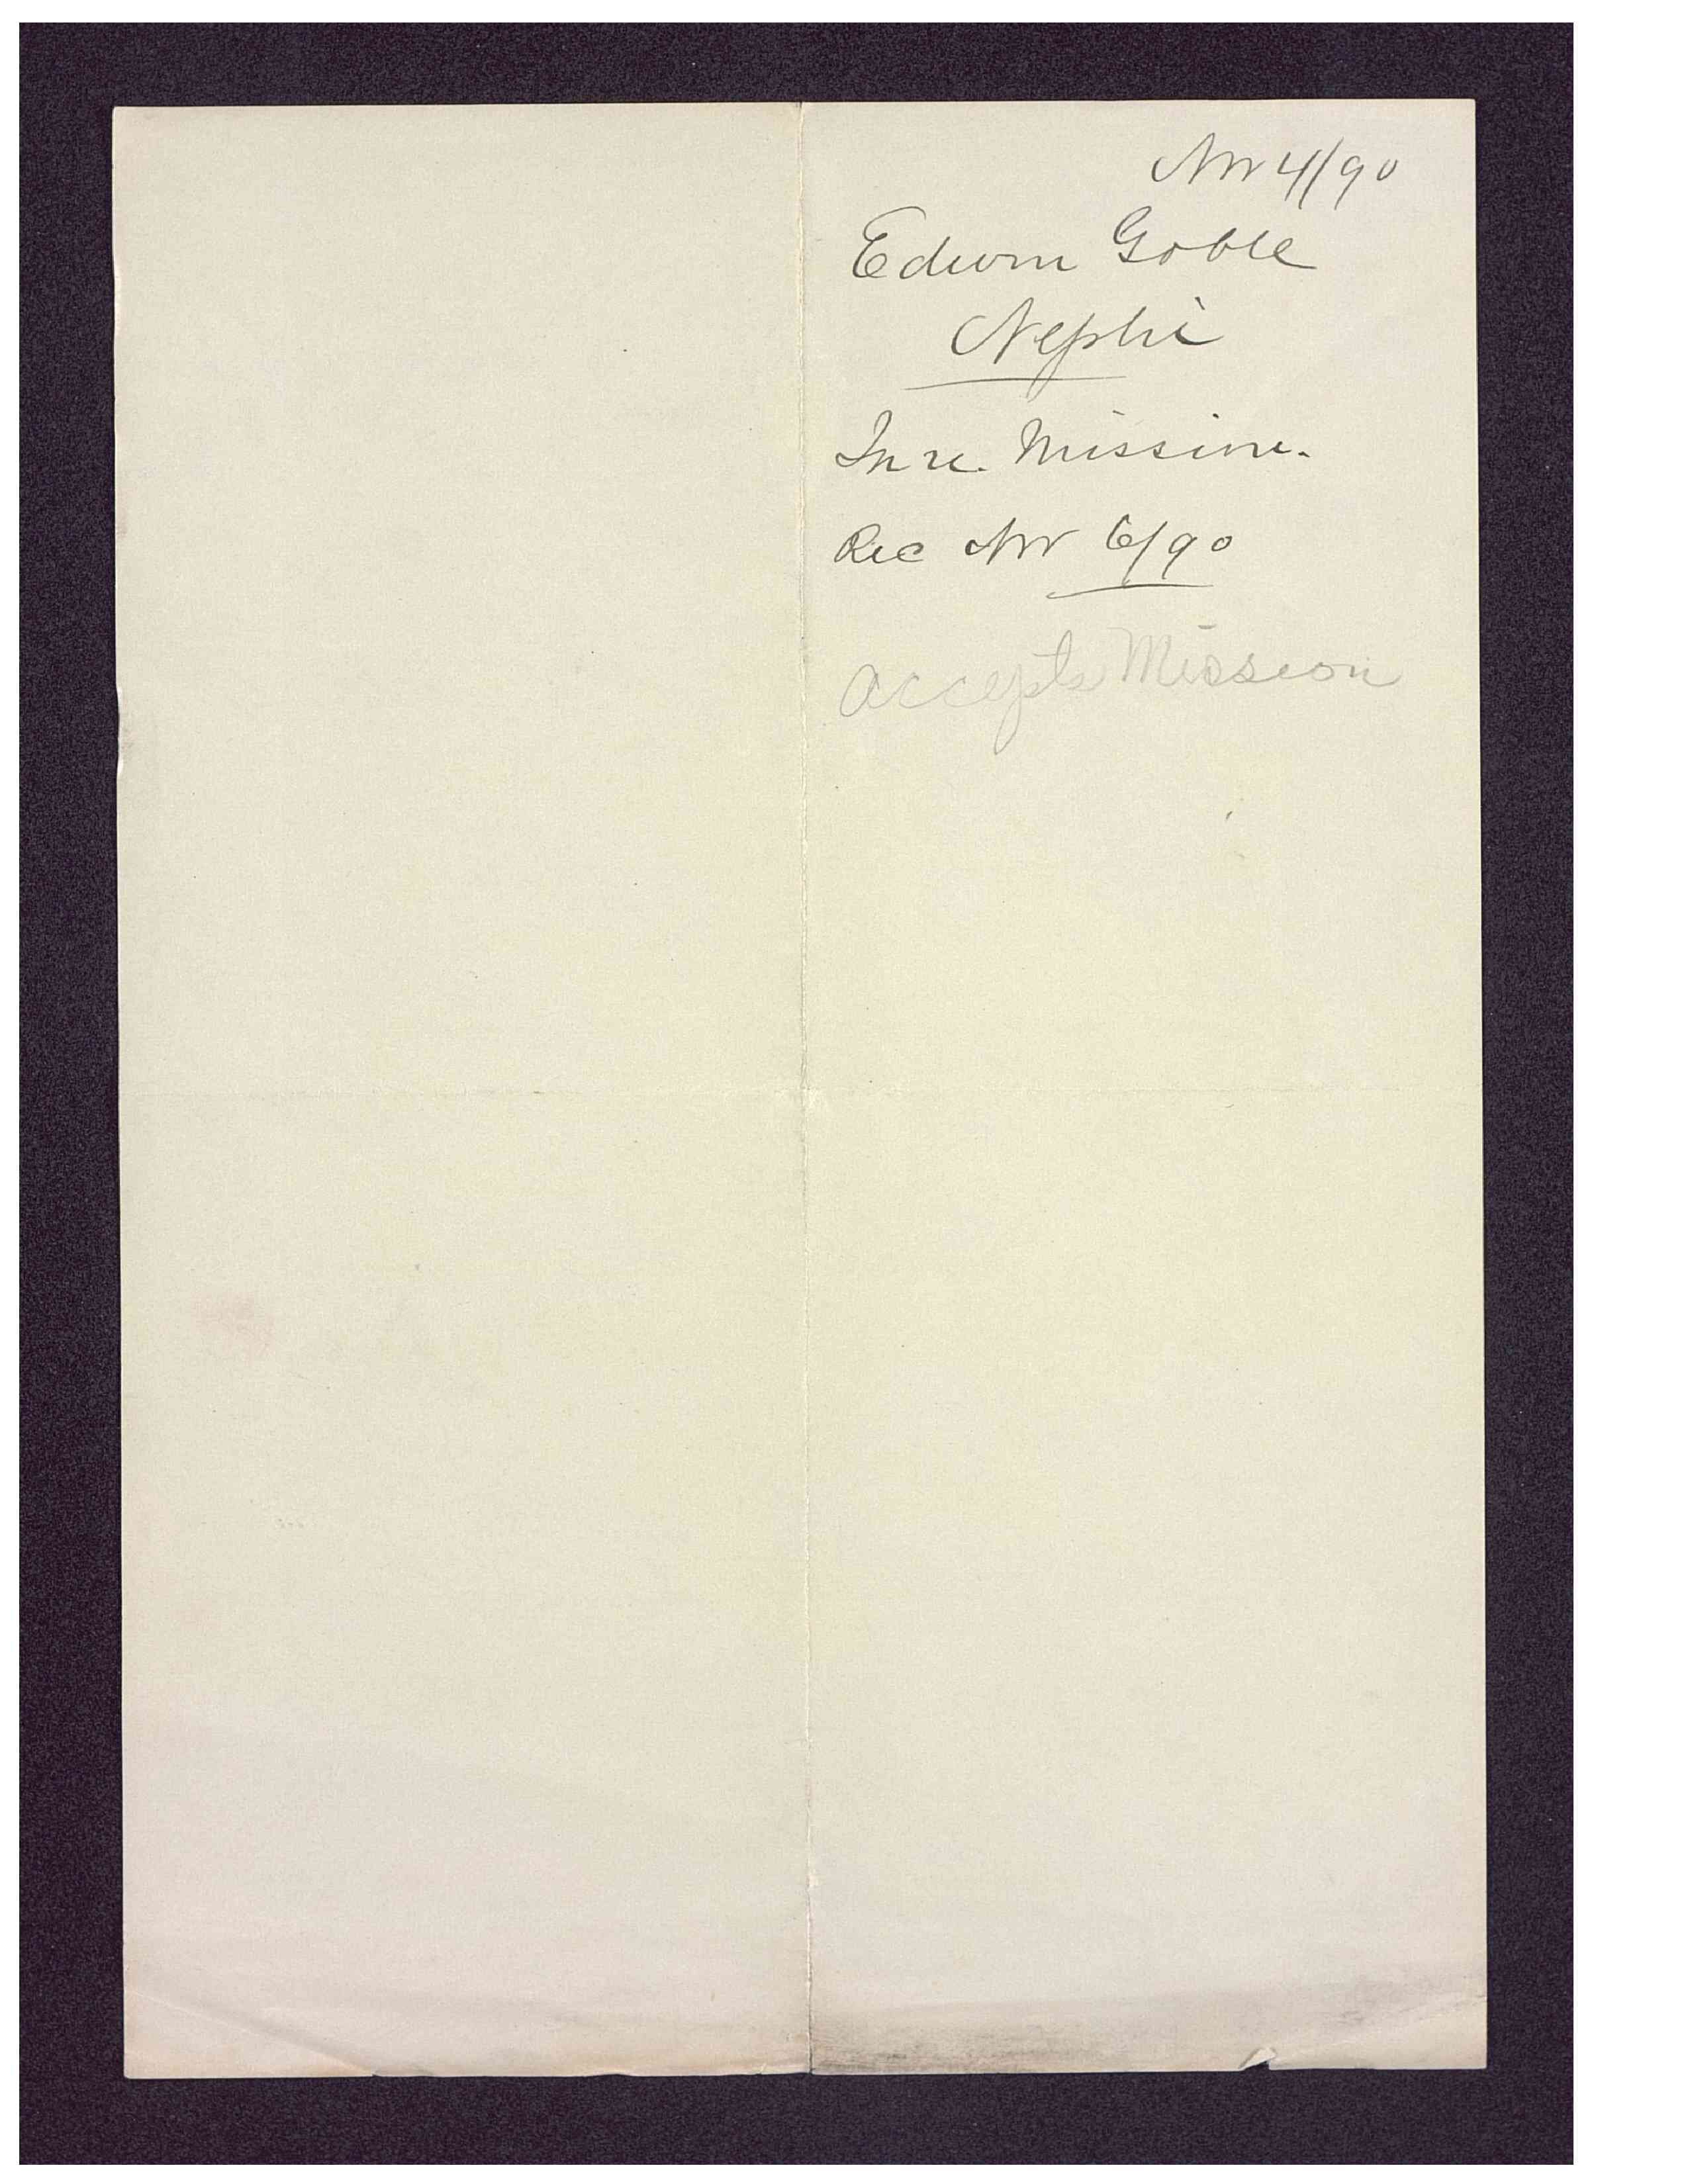 Nov 4/90
Edwin Goble
Nephi
In re. Mission.
Rec Nov 6/90
Accepts Mission